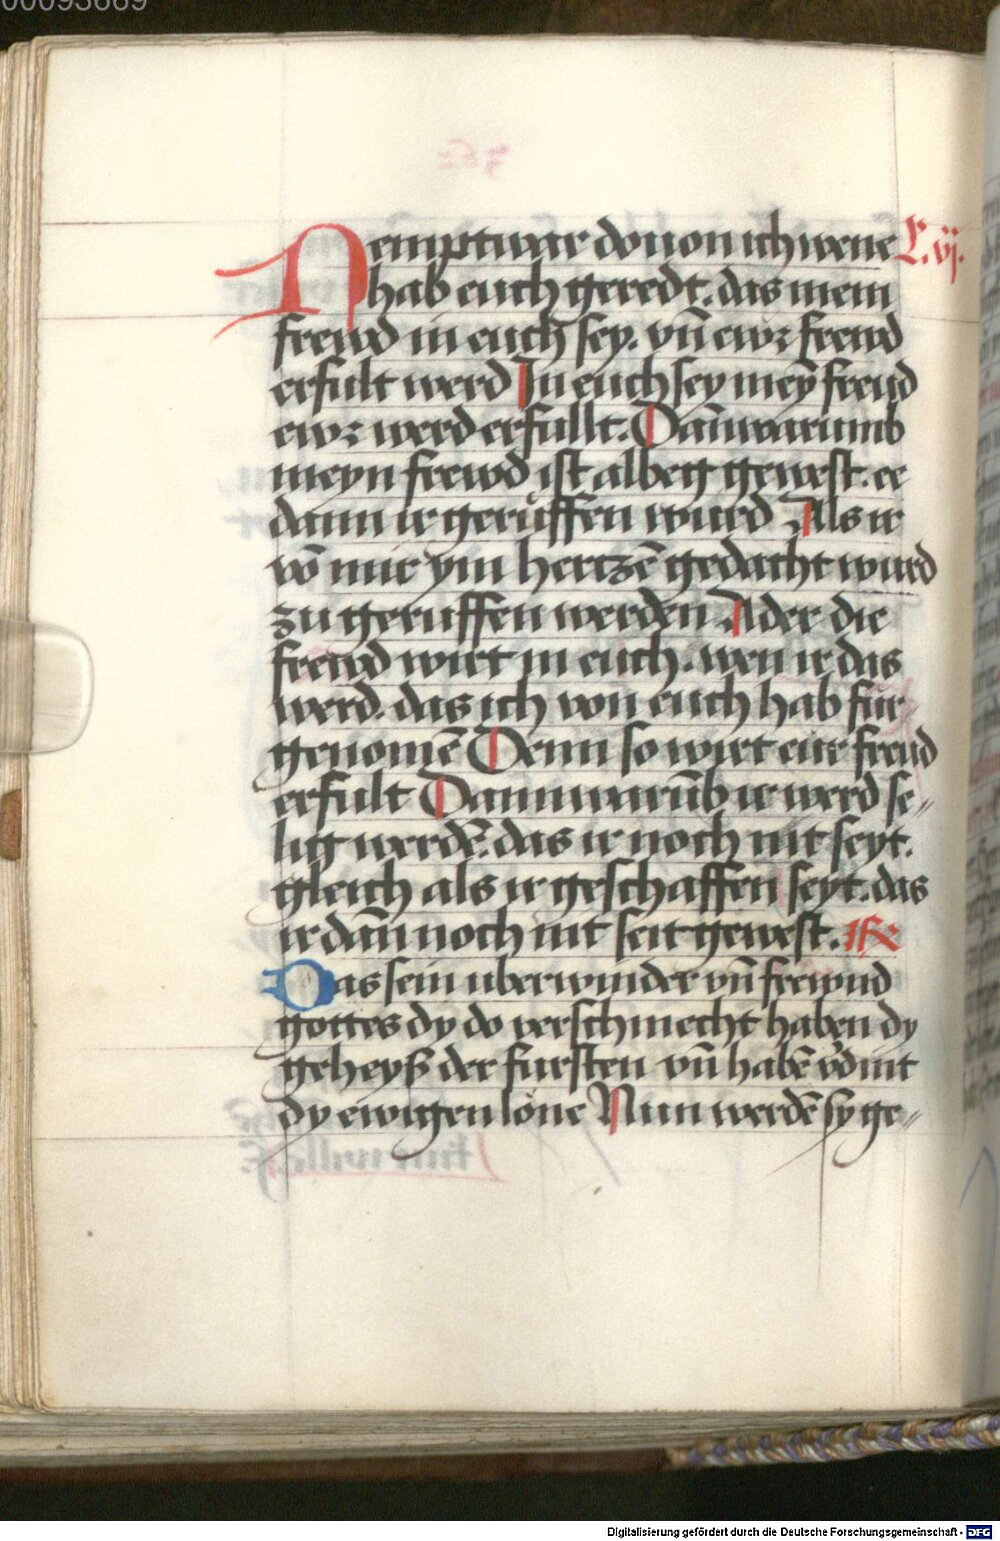 00093669
Nempt war douon ich wene L. vj.
hab euch geredt. das mein
freud in euch sey. vñ ewr freud
erfult werd In euch sey meÿ freud
ewr werd erfullt. Dañ warumb
meyn frewd ist albeg gewest. ee
dann ir gerůffen wurd Als ir
võ mir ym hertzẽ gedacht wurd
zu geruffen werden Ader die
freud wirt in euch. wen ir das
werd. das ich von euch hab für
genomẽ Denn so wirt eur freud
erfult Dann warũb ir werd se„
lig werdẽ. das ir noch nit seyt.
gleich als ir geschaffen seyt. das
ir dañ noch nit seit gewest. R
Das sein uberwinder vñ frewnd
gottes dy do verschmecht haben dy
geheyß der fursten vñ habẽ v̈dint
dy ewigen lone Nun werdẽ sy ge„
Digitalisierung gefördert durch die Deutsche Forschungsgemeinschaft - DFG